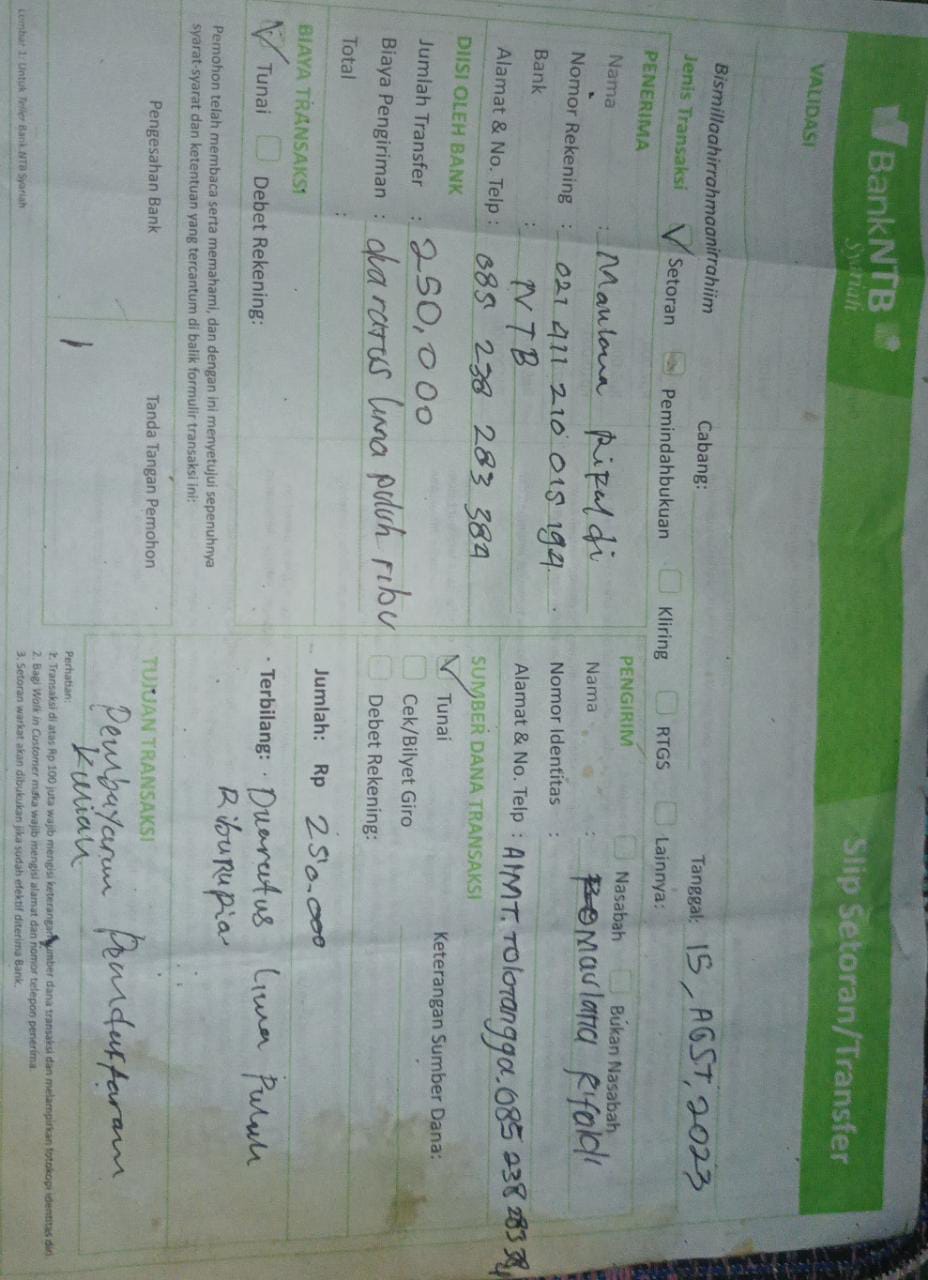 BankNTB
Syariah
Slip Setoran/Transfer
VALIDASI
Bismillaahirrahmaanirrahiim
Cabang:
Tanggal: 15, AGST, 2023
Jenis Transaksi
Setoran
Pemindahbukuan
Kliring
RTGS
Lainnya:
PENERIMA
Nama : Maulana Rifaldi
Nomor Rekening : 021 411 210 015 194
Bank : NTB
Alamat & No. Telp : 085 238 283 384
PENGIRIM
Nasabah
Bukan Nasabah
Nama : Maulana Rifaldi
Nomor Identitas :
Alamat & No. Telp : A1MT. TOLOTANGGA. 085 238 283 384
DIISI OLEH BANK
Jumlah Transfer : 250,000
Biaya Pengiriman : dua ratus lima puluh ribu
Total :
SUMBER DANA TRANSAKSI
Tunai
Keterangan Sumber Dana:
Cek/Bilyet Giro
Debet Rekening:
BIAYA TRANSAKSI
Tunai
Debet Rekening:
Jumlah: Rp 250.000
Terbilang: Duaratus Lima Puluh
Riburupia
Pemohon telah membaca serta memahami, dan dengan ini menyetujui sepenuhnya
syarat-syarat dan ketentuan yang tercantum di balik formulir transaksi ini:
Pengesahan Bank
Tanda Tangan Pemohon
TUJUAN TRANSAKSI
Pembayaran Pendaftaran
Kuliah
Perhatian:
1. Transaksi di atas Rp 100 juta wajib mengisi keterangan sumber dana transaksi dan melampirkan fotokopi identitas diri
2. Bagi Walk in Customer maka wajib mengisi alamat dan nomor telepon penerima.
3. Setoran warkat akan dibukukan jika sudah efektif diterima Bank.
Lembar 1: Untuk Teller Bank NTB Syariah